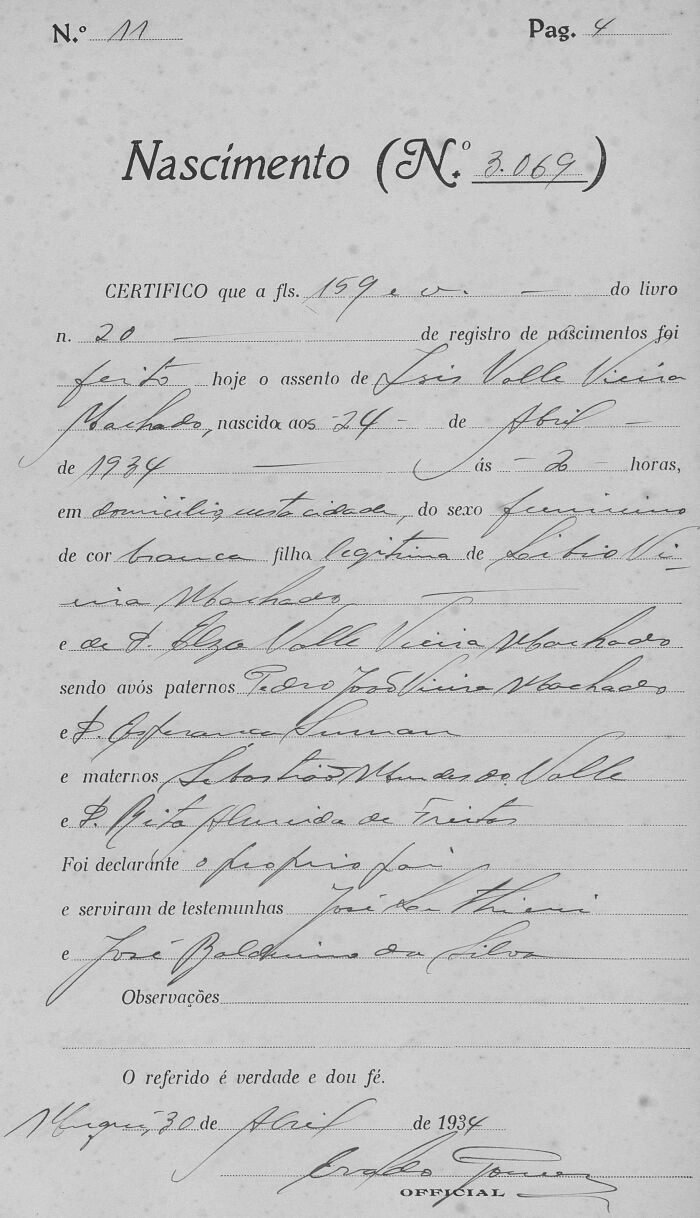 N.º 11 Pag. 4
Nascimento (N.º 3.069)
CERTIFICO que a fls. 159 e v. — do livro
n. 20 — de registro de nascimentos foi
feito hoje o assento de Isis Valle Vieira
Machado, nascida aos -24- de Abril —
de 1934 — ás -20- horas,
em domicilio, nesta cidade, do sexo feminino
de cor branca filha legitima de Libio Vi-
eira Machado —
e de D. Elza Valle Vieira Machado
sendo avós paternos Pedro João Vieira Machado
e D. Esperança
e maternos Sebastião Mendes do Valle
e D. Rita Almeida de Freitas
Foi declarante o proprio pai
e serviram de testemunhas José
e José Balduino da Silva
Observações
O referido é verdade e dou fé.
Muqui, 30 de Abril de 1934
Eraldo Gomes
OFFICIAL